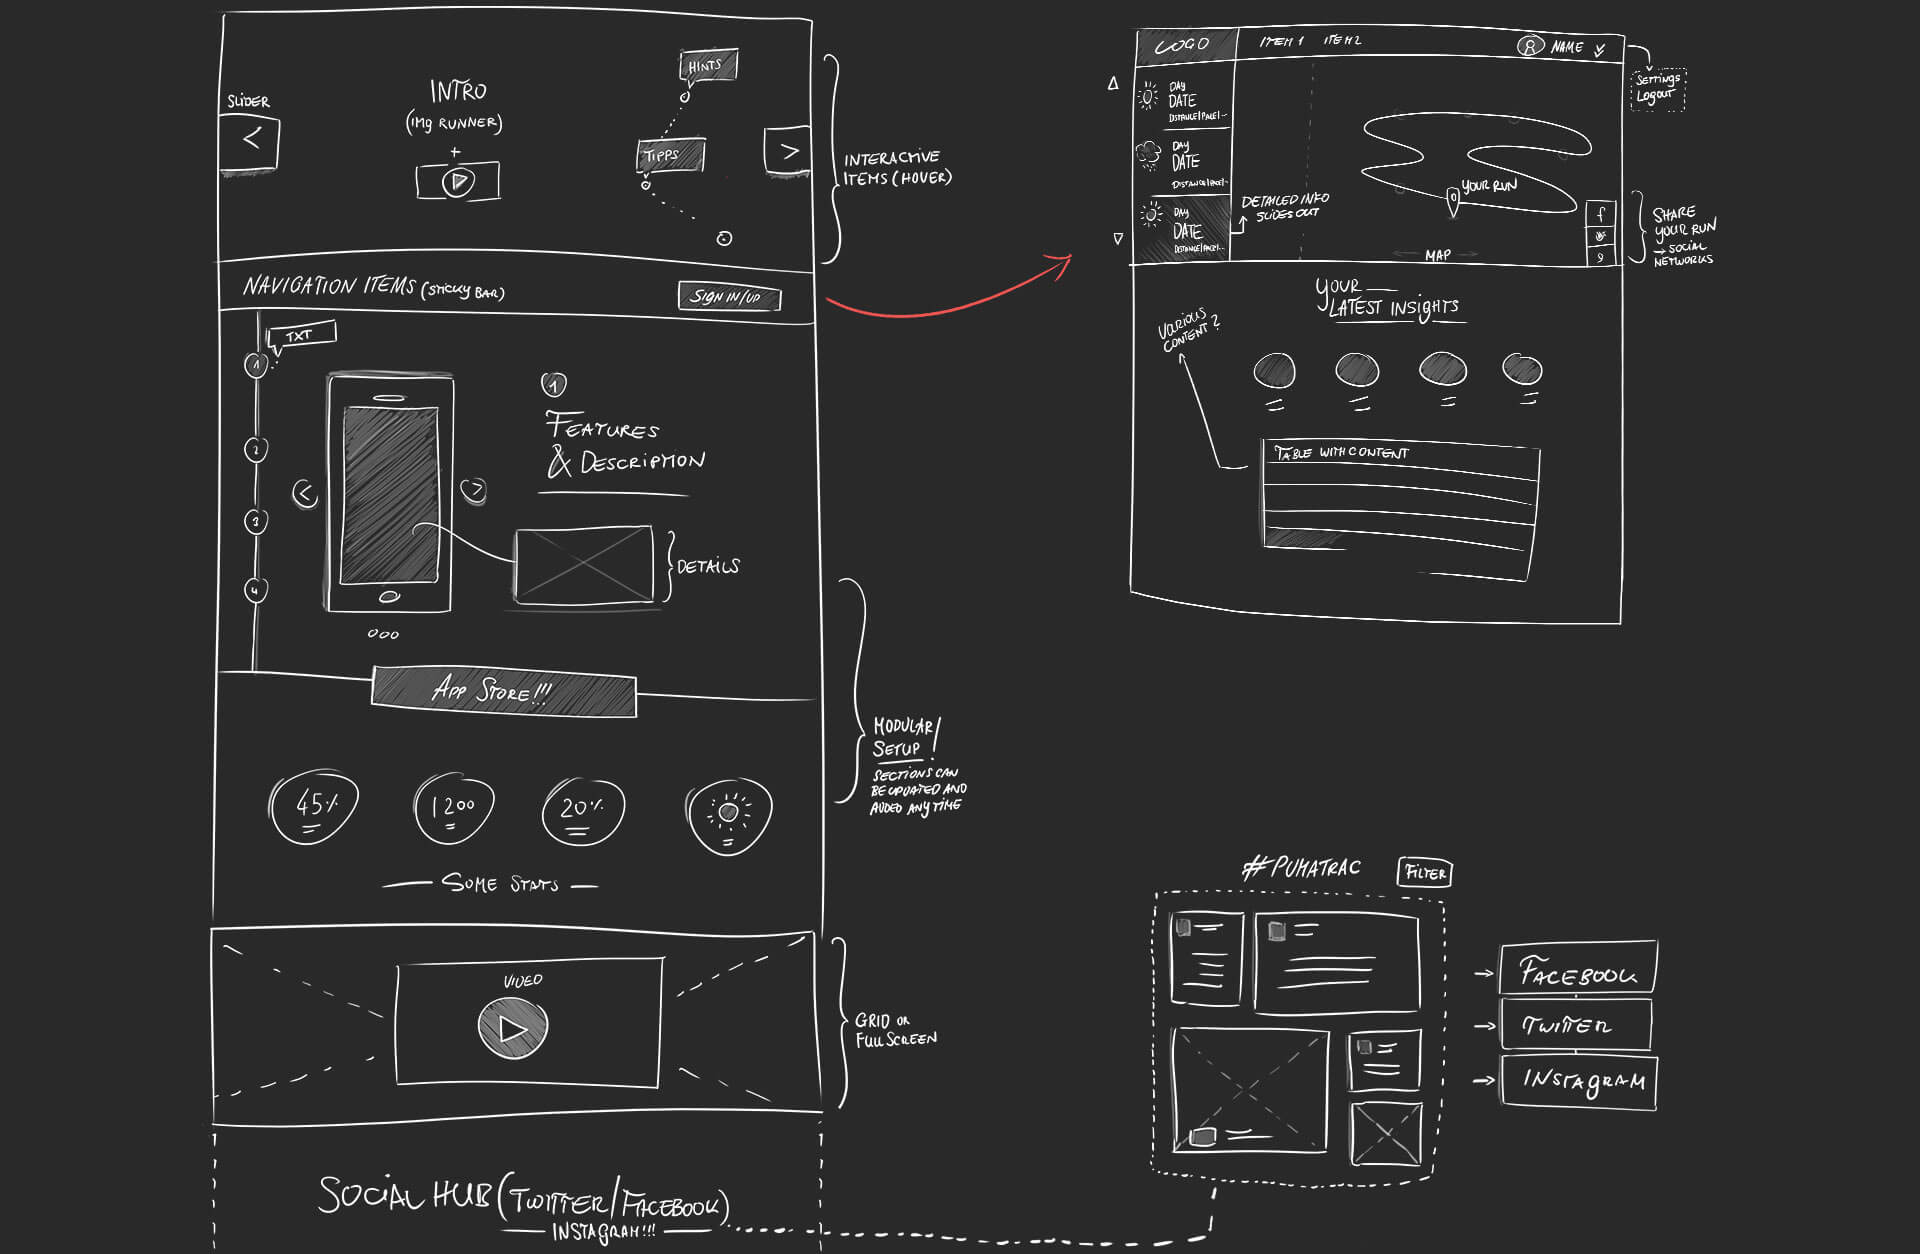 SLIDER
<
INTRO
(IMG RUNNER)
+
HINTS
TIPPS
>
INTERACTIVE
ITEMS (HOVER)
NAVIGATION ITEMS (STICKY BAR)
SIGN IN/UP
TXT
1
2
3
4
<
>
1
FEATURES
& DESCRIPTION
DETAILS
APP STORE!!!
MODULAR
SETUP!
SECTIONS CAN
BE UPDATED AND
ADDED ANYTIME
45%
1200
20%
SOME STATS
VIDEO
GRID OR
FULLSCREEN
SOCIAL HUB (TWITTER/FACEBOOK)
INSTAGRAM!!!
LOGO
ITEM 1 ITEM 2
NAME
SETTINGS
LOGOUT
DAY
DATE
DISTANCE|PACE|...
DAY
DATE
DISTANCE|PACE|...
DAY
DATE
DISTANCE|PACE|...
DETAILED INFO
SLIDES OUT
YOUR RUN
MAP
f
SHARE
YOUR RUN
→ SOCIAL
NETWORKS
YOUR
LATEST INSIGHTS
VARIOUS
CONTENT?
TABLE WITH CONTENT
#PUMATRAC
FILTER
FACEBOOK
TWITTER
INSTAGRAM